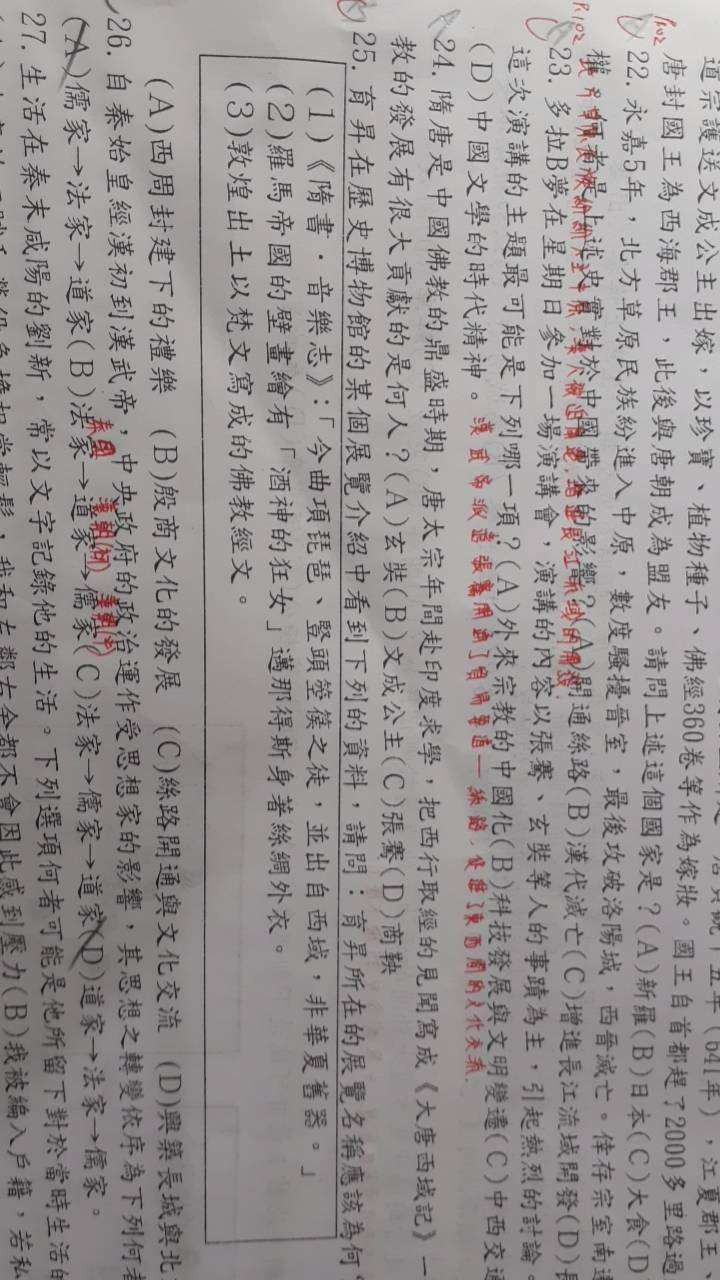 道宗護送文成公主出嫁，以珍寶、植物種子、佛經360卷等作為嫁妝。國王自首都趕了2000多里路過
唐封國王為西海郡王，此後與唐朝成為盟友。請問上述這個國家是？(A)新羅(B)日本(C)大食(D
P102
22. 永嘉5年，北方草原民族紛進入中原，數度騷擾晉室，最後攻破洛陽城，西晉滅亡。倖存宗室南
權。何者是上述史實對於中國帶來的影響？(A)開通絲路(B)漢代滅亡(C)增進長江流域開發(D)
P102
23. 多拉B夢在星期日參加一場演講會，演講的內容以張騫、玄奘等人的事蹟為主，引起熱烈的討論。
這次演講的主題最可能是下列哪一項？(A)外來宗教的中國化(B)科技發展與文明變遷(C)中西交通
(D)中國文學的時代精神。
漢武帝派遣張騫開通了貿易要道—絲路，促進了東西間的文化交流.
24. 隋唐是中國佛教的鼎盛時期，唐太宗年間赴印度求學，把西行取經的見聞寫成《大唐西域記》一
教的發展有很大貢獻的是何人？(A)玄奘(B)文成公主(C)張騫(D)商鞅
25. 育昇在歷史博物館的某個展覽介紹中看到下列的資料，請問：育昇所在的展覽名稱應該為何
(1)《隋書．音樂志》：「今曲項琵琶、豎頭箜篌之徒，並出自西域，非華夏舊器。」
(2)羅馬帝國的壁畫繪有「酒神的狂女」邁那得斯身著絲綢外衣。
(3)敦煌出土以梵文寫成的佛教經文。
(A)西周封建下的禮樂 (B)殷商文化的發展 (C)絲路開通與文化交流 (D)興築長城與北
26. 自秦始皇經漢初到漢武帝，中央政府的政治運作受思想家的影響，其思想之轉變依序為下列何者
秦國 漢朝(初)
(A)儒家→法家→道家(B)法家→道家→儒家(C)法家→儒家→道家(D)道家→法家→儒家。
27. 生活在秦末咸陽的劉新，常以文字記錄他的生活。下列選項何者可能是他所留下對於當時生活的
我和左鄰右舍都不會因此感到壓力(B)我被編入戶籍，若私